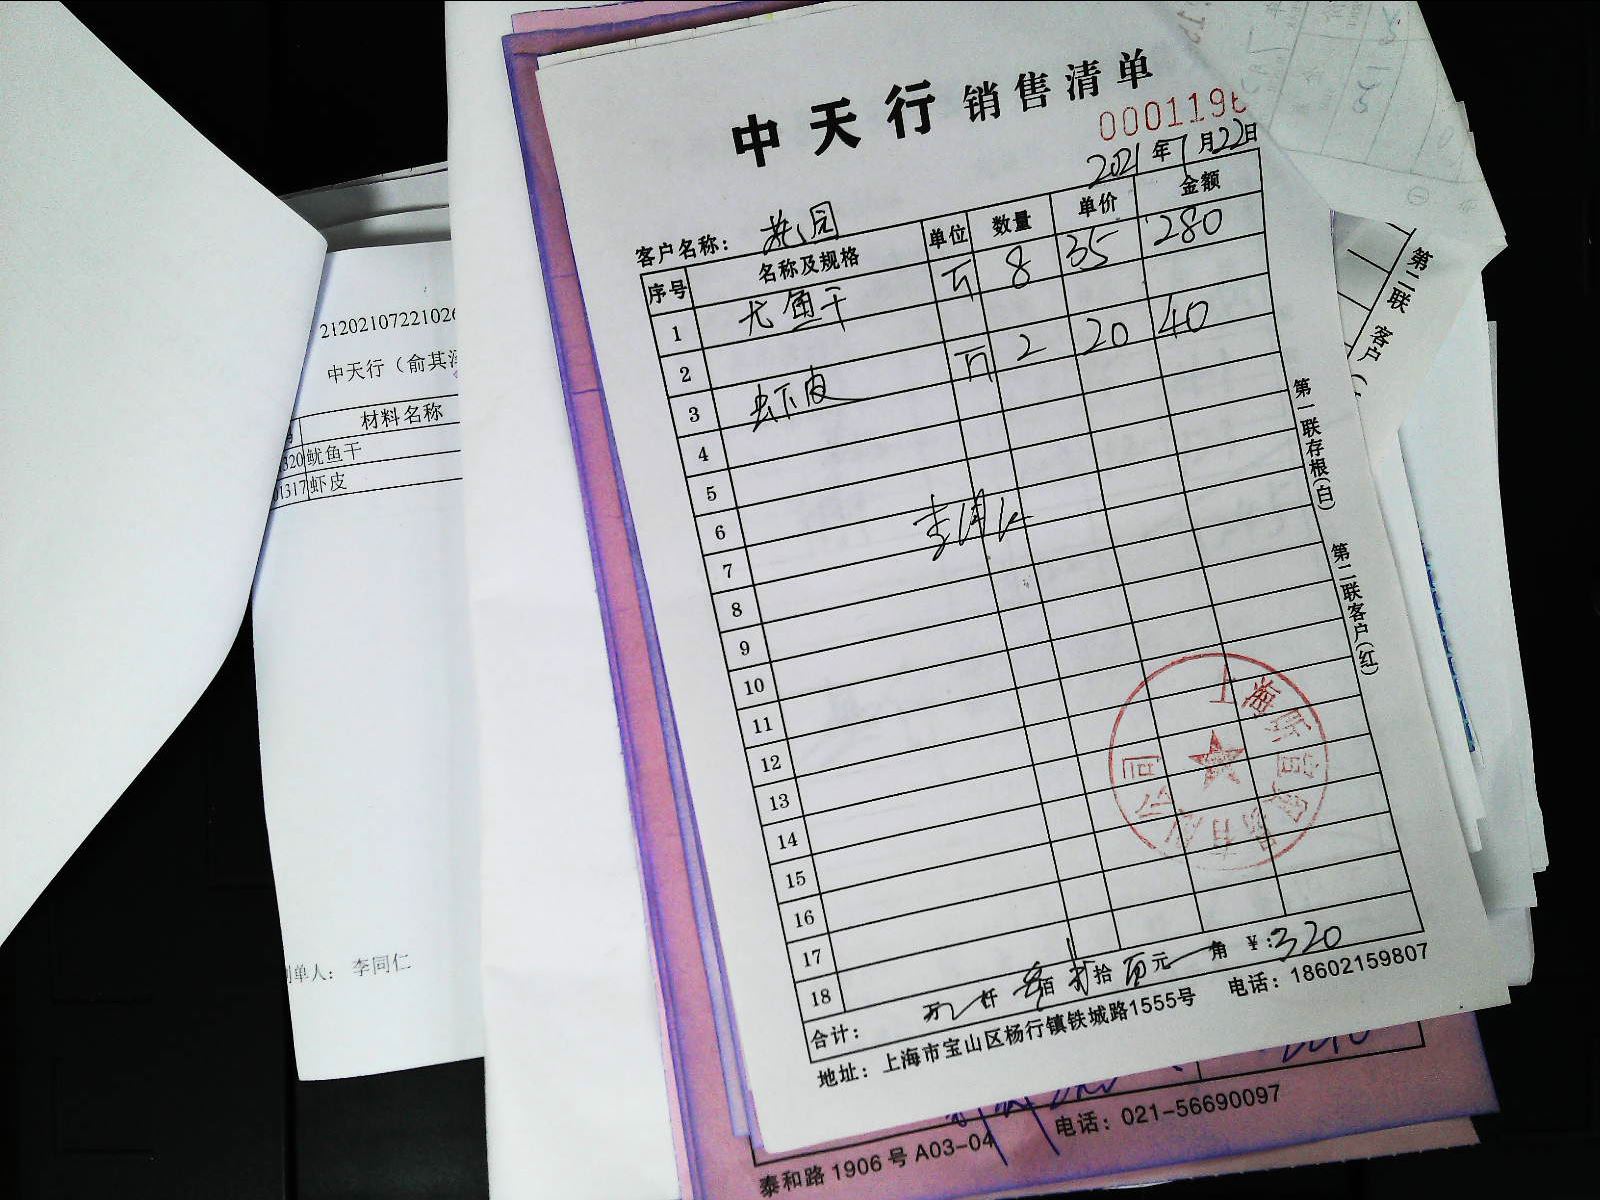 中天行 销售清单
000119
2021年7月22日
客户名称：
序号 名称及规格 单位 数量 单价 金额
1 尤鱼干 斤 8 35 280
2
3 虾皮 斤 2 20 40
4
5
6
7
8
9
10
11
12
13
14
15
16
17
18
合计： 万 仟 叁佰 贰拾 元 角 ￥:320
地址：上海市宝山区杨行镇铁城路1555号 电话：18602159807
第一联存根(白) 第二联客户(红)
上海
有限公司
21202107221026
中天行（俞其
材料名称
320 鱿鱼干
1317 虾皮
制单人： 李同仁
第二联 客户
泰和路1906号A03-04 电话：021-56690097